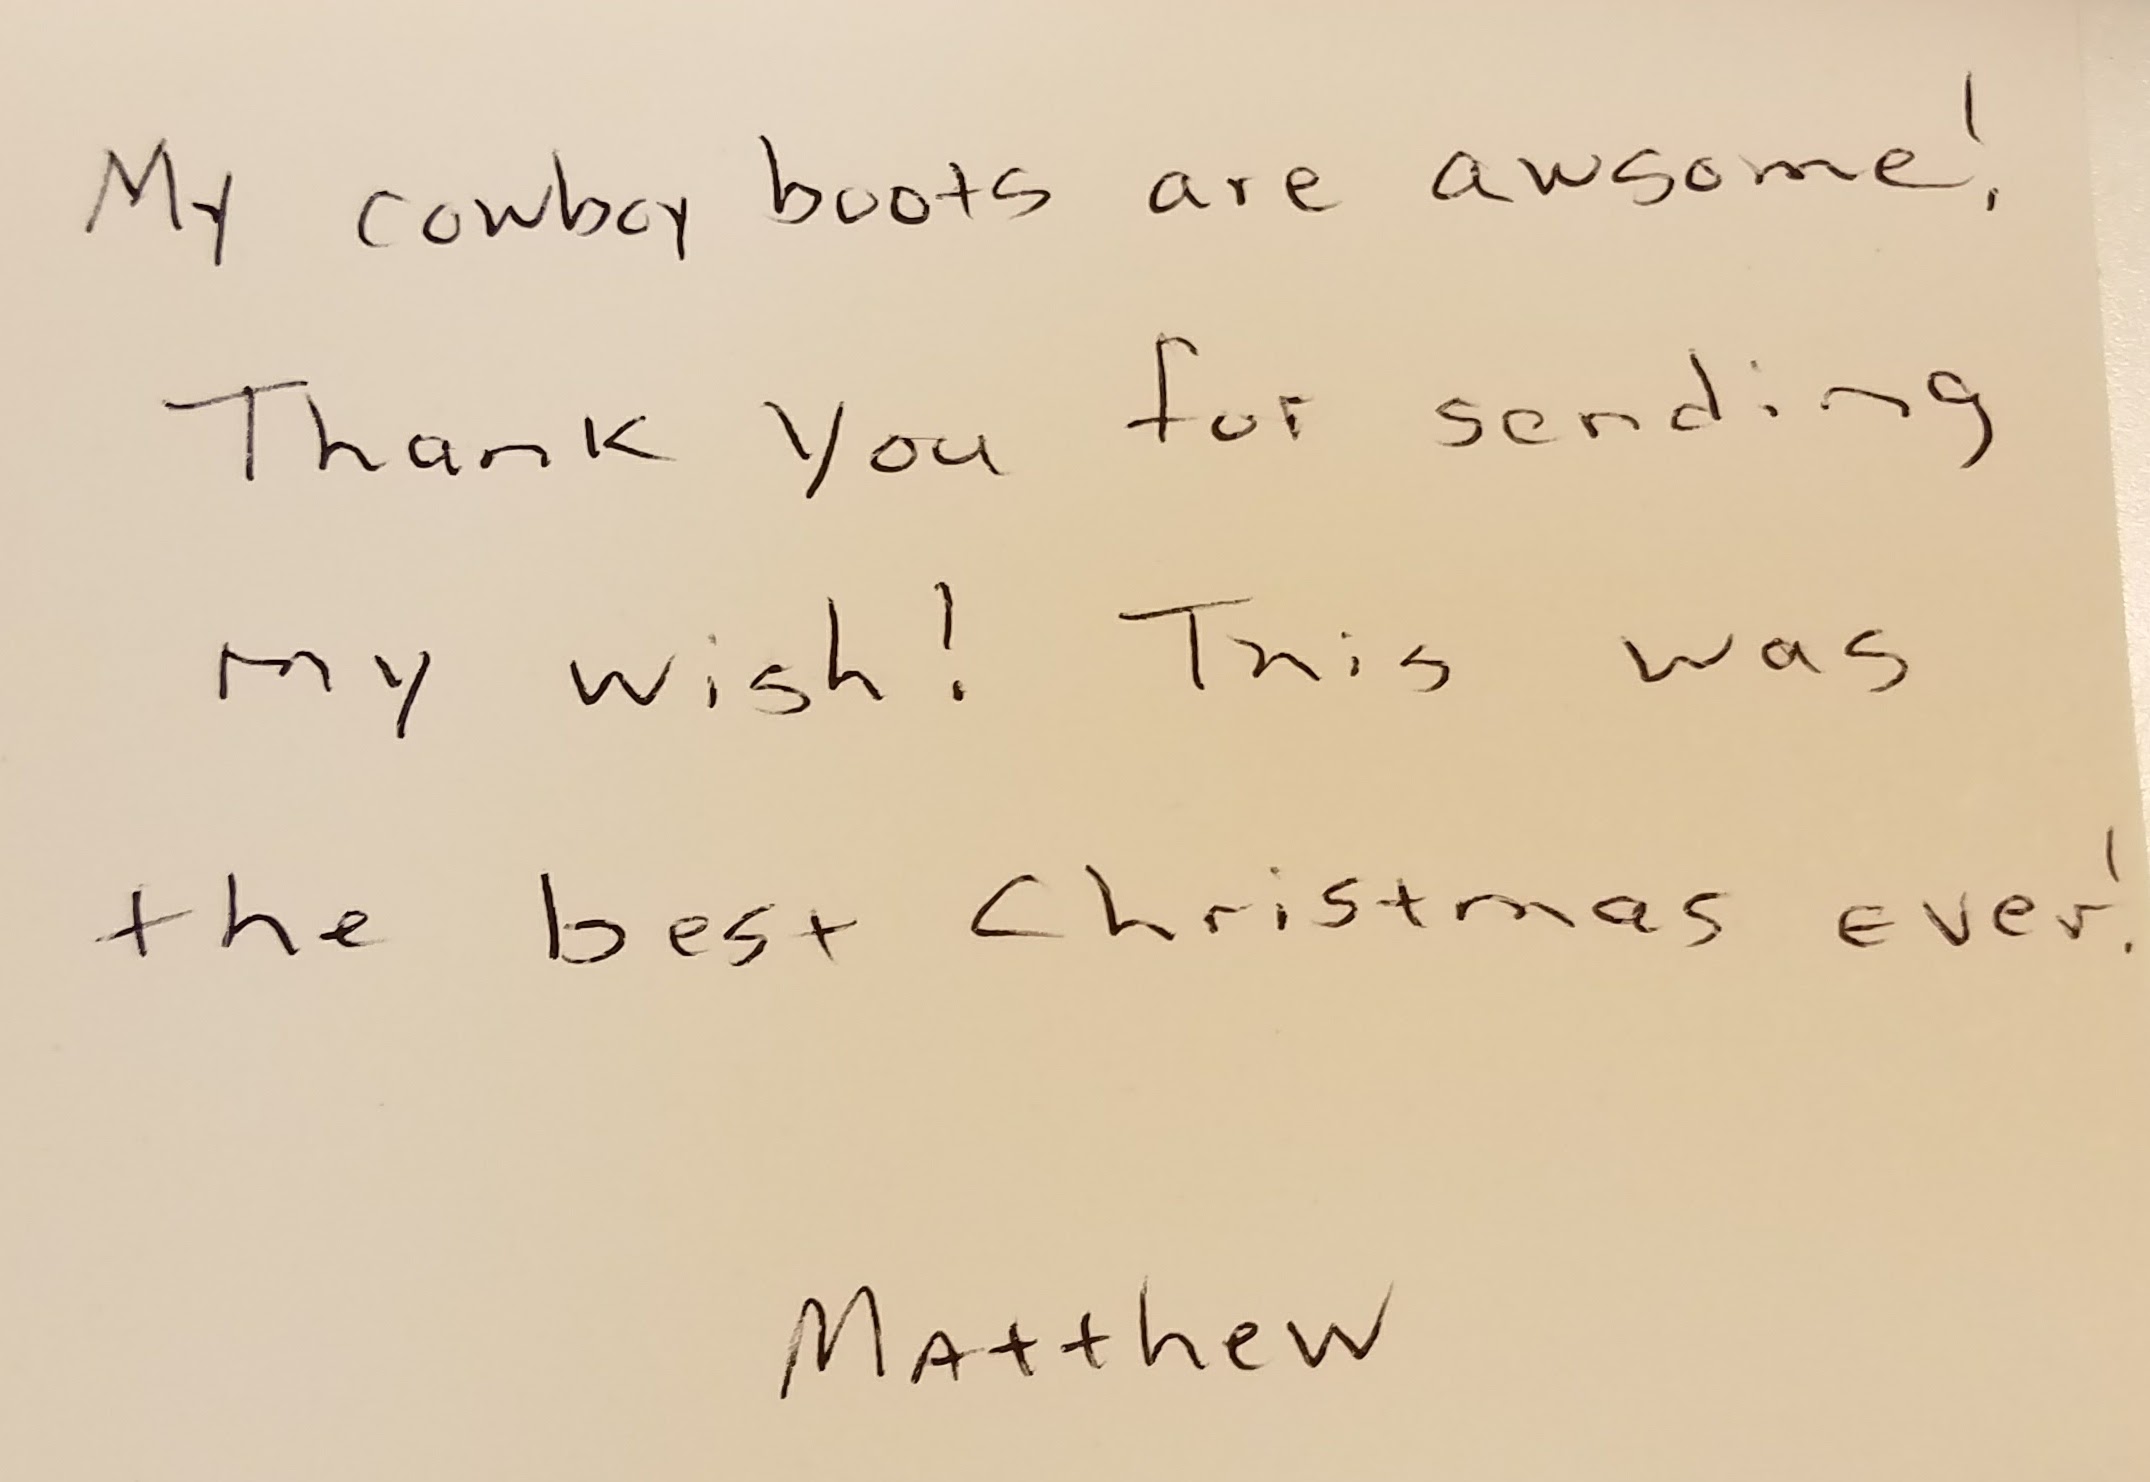 My cowboy boots are awsome!
Thank you for sending
my wish! This was
the best Christmas ever!
Matthew